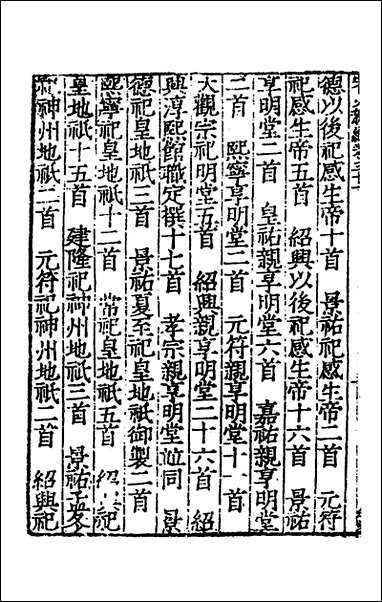 德以後祀感生帝十首　景祐祀感生帝二首　元符
祀感生帝五首　紹興以後祀感生帝十六首　景祐
享明堂二首　皇祐親享明堂六首　嘉祐親享明堂
二首　熙寧享明堂二首　元符親享明堂十一首
大觀宗祀明堂五首　紹興親享明堂二十六首　紹
興淳熙館職定撰十七首　孝宗親享明堂竝同　景
德祀皇地祇三首　景祐夏至祀皇地祇御製二首
熙寧祀皇地祇十二首　常祀皇地祇五首　紹　祀
皇地祇十五首　建隆祀神州地祇三首　景祐孟冬
祀神州地祇二首　元符祀神州地祇二首　紹興祀